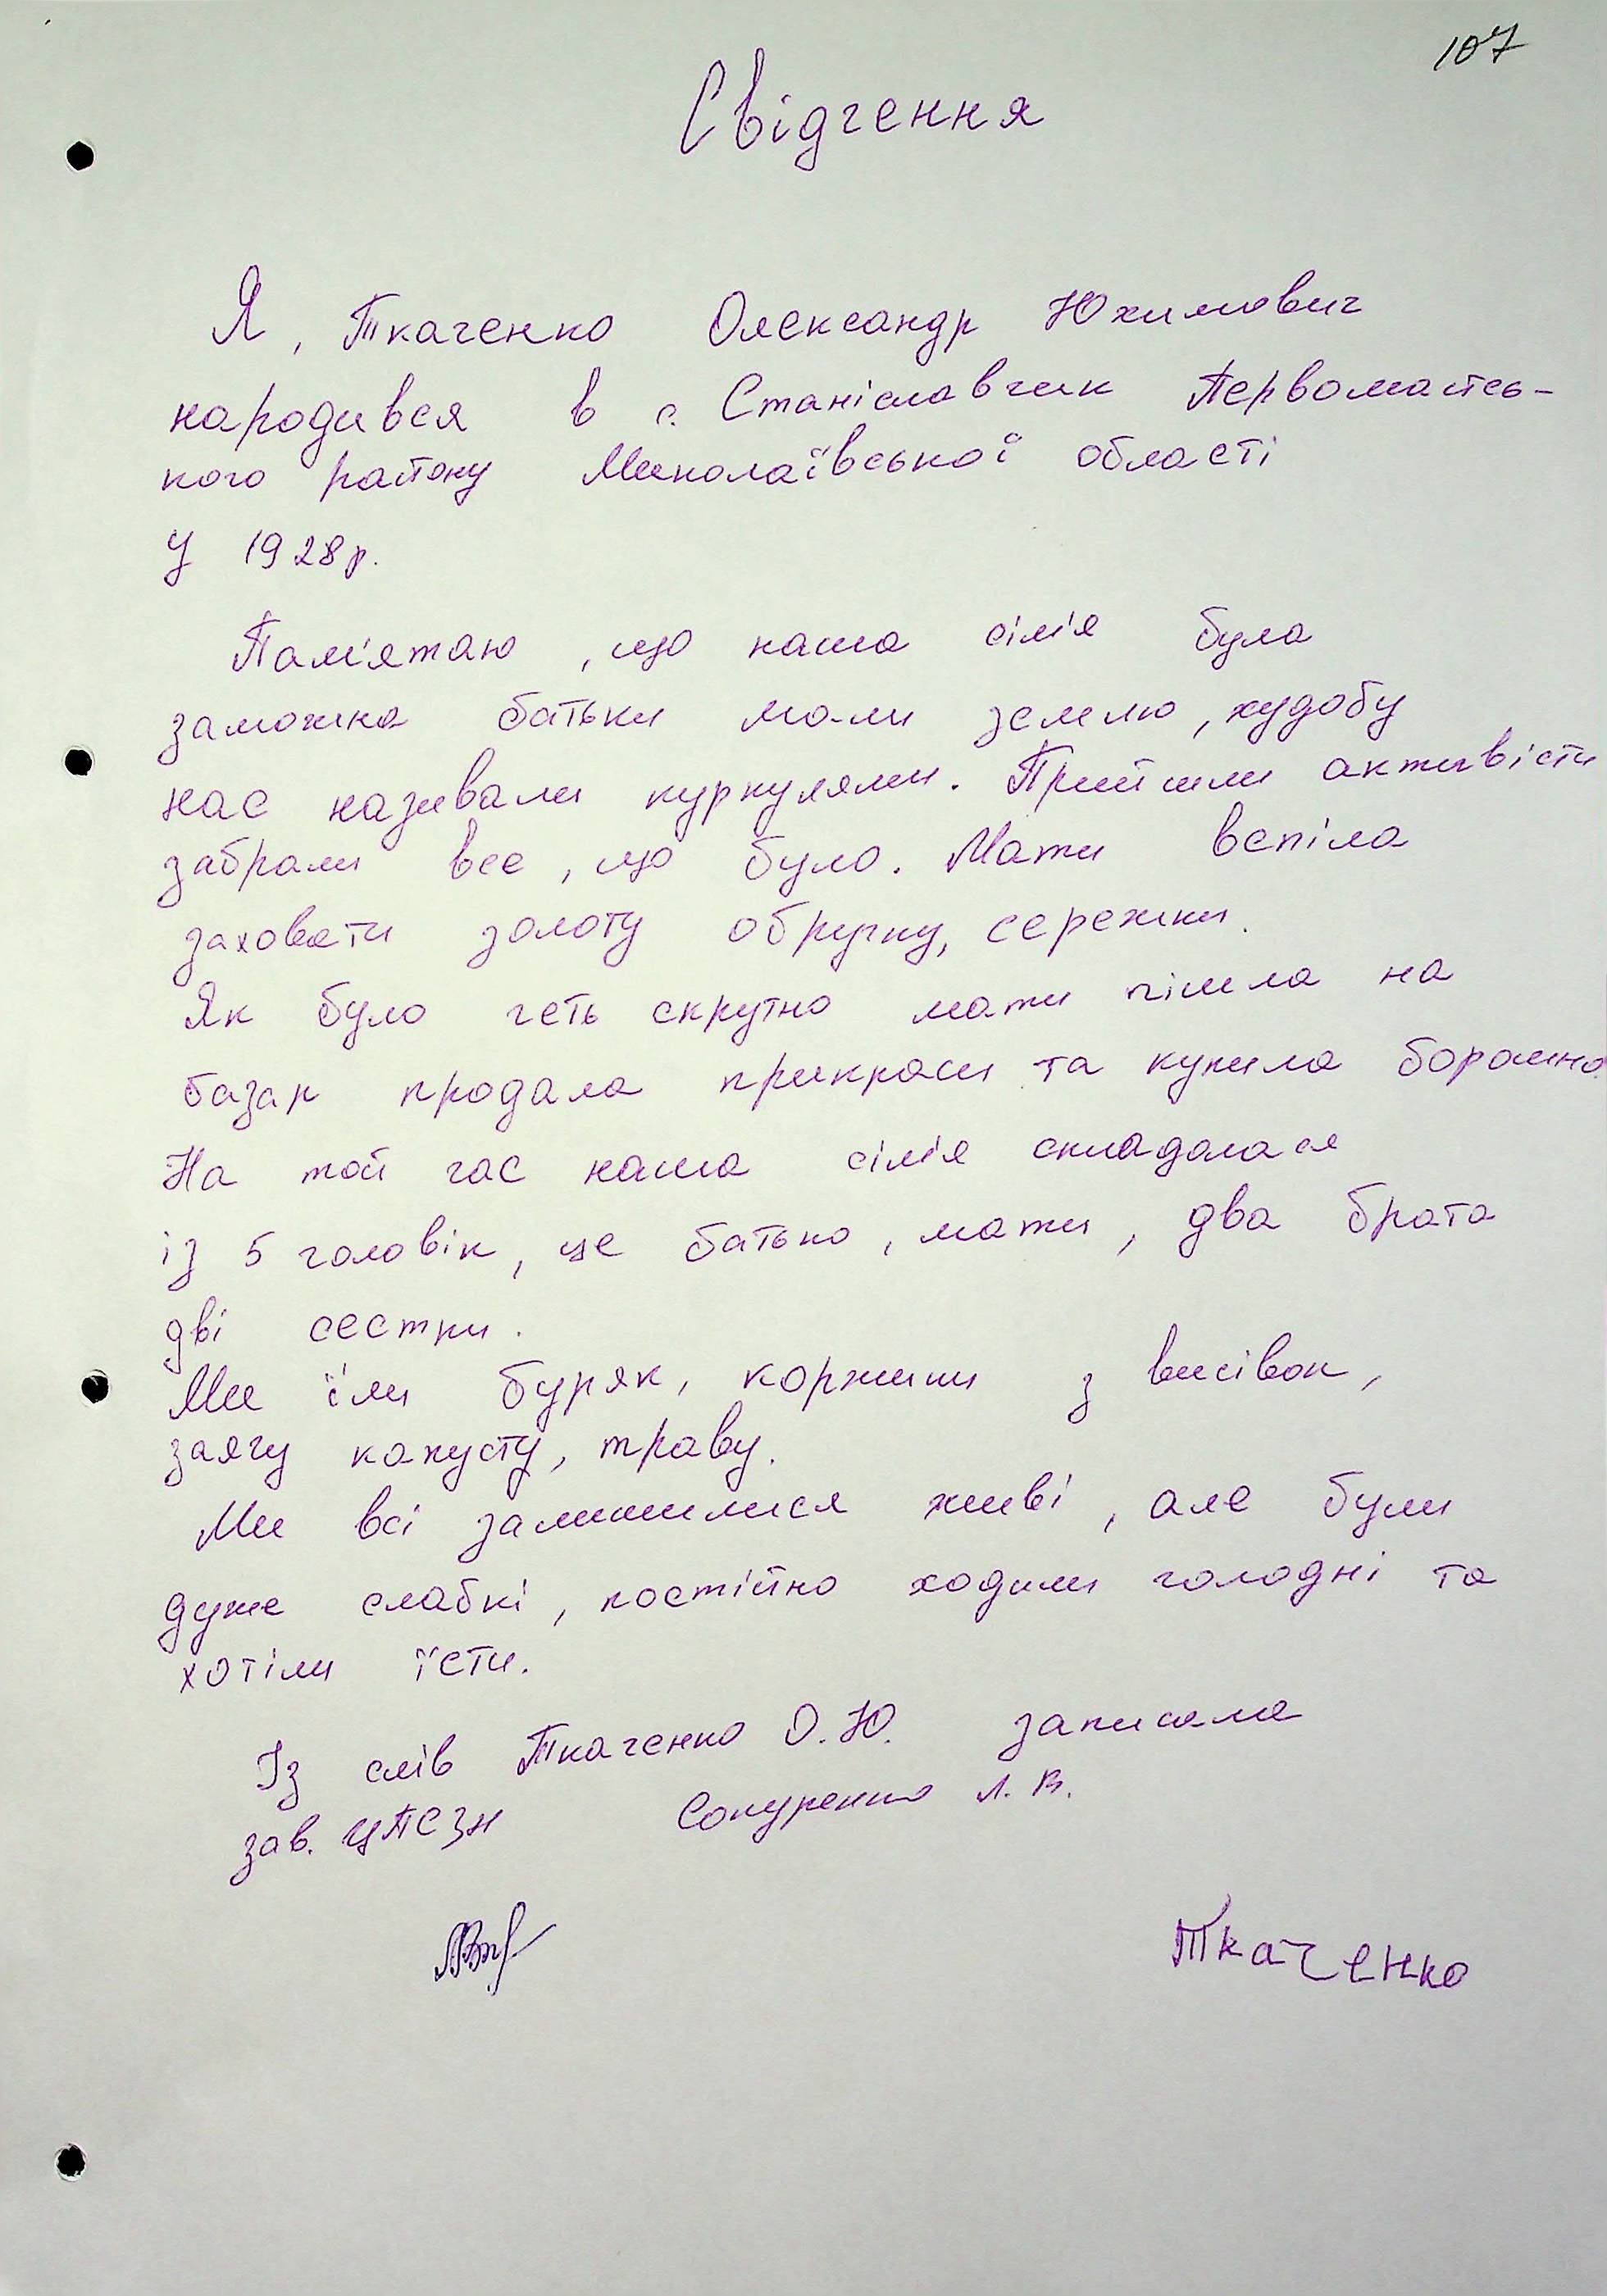 107
Свідчення
Я, Ткаченко Олександр Юхимович
народився в с. Станіславчик Первомайсь-
кого району Миколаївської області
У 1928р.
Пам'ятаю, що наша сім'я була
заможна батьки мали землю, худобу
нас називали куркулями. Прийшли активісти
забрали все, що було. Мати вспіла
заховати золоту обручку, сережки.
Як було геть скрутно мати пішла на
базар продала прикраси та купила борошно.
На той час наша сім'я складалася
із 5 чоловік, це батько, мати, два брата
дві сестри.
Ми їли буряк, коржики з висівок,
заячу капусту, траву.
Ми всі залишилися живі, але були
дуже слабкі, постійно ходили голодні та
хотіли їсти.
Із слів Ткаченко О.Ю. записала
зав. ЦПСЗН Сокуренко Л.В.
Ткаченко